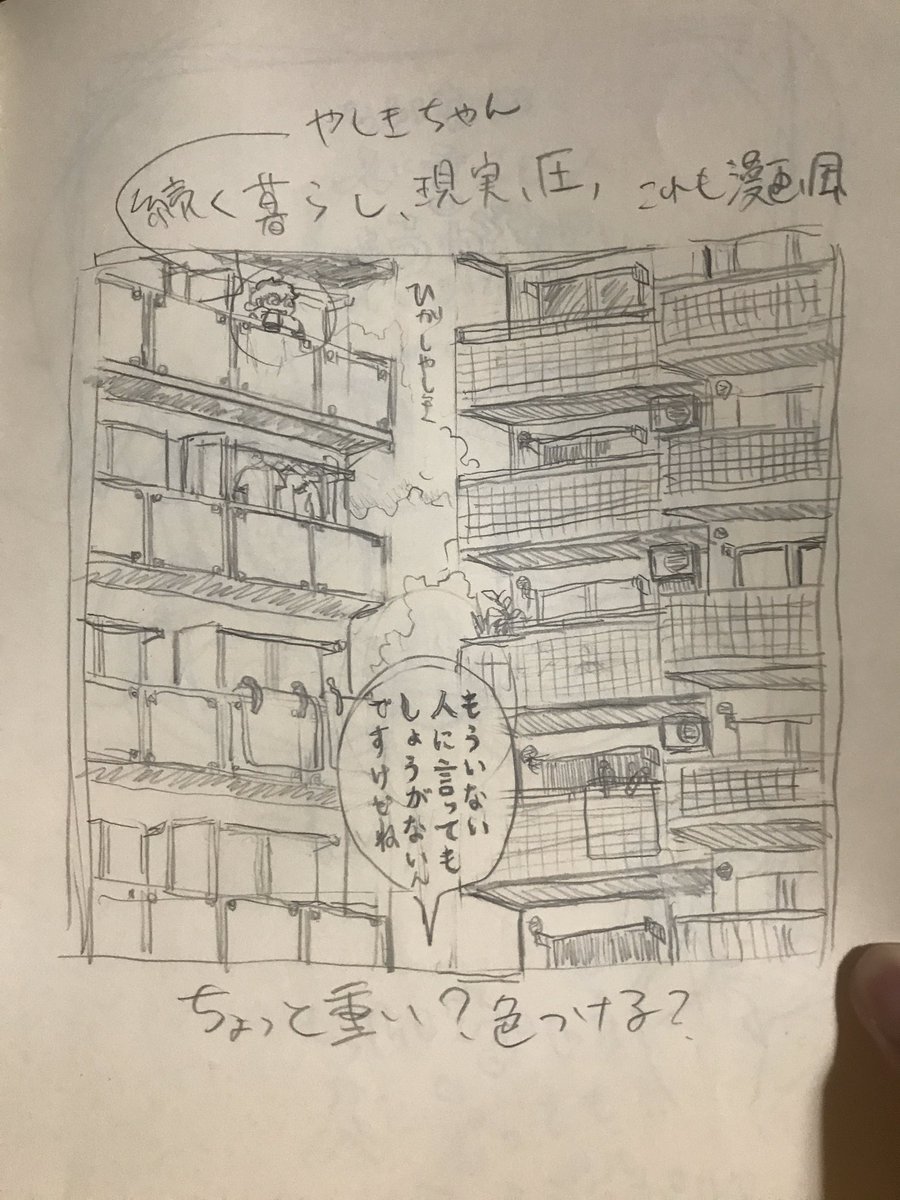 やしきちゃん
続く暮らし、現実、圧、これも漫画風
ひがしやしき
もういない
人に言っても
しょうがないん
ですけどね
ちょっと重い？色つける？